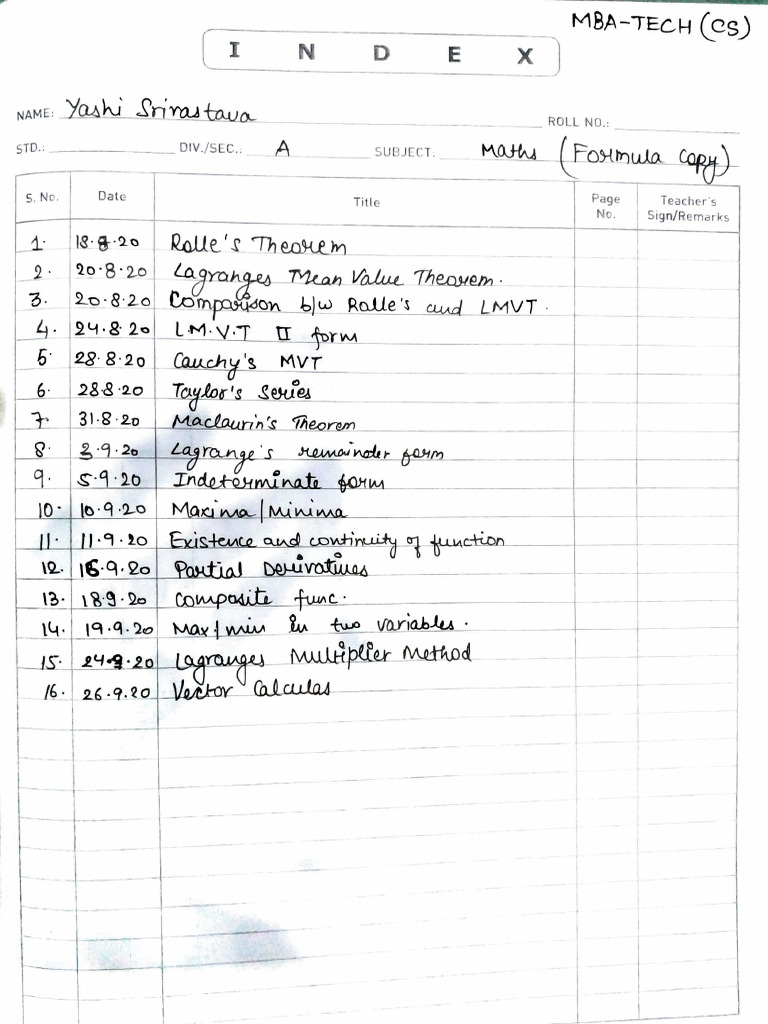 MBA-TECH (CS)
I N D E X
NAME: Yashi Srivastava ROLL NO.:
STD.: DIV./SEC.: A SUBJECT: Maths (Formula copy)
S. No. Date Title Page No. Teacher's Sign/Remarks
1. 18.8.20 Rolle's Theorem
2. 20.8.20 Lagranges Mean Value Theorem.
3. 20.8.20 Comparison b/w Rolle's and LMVT.
4. 24.8.20 L.M.V.T II form
5. 28.8.20 Cauchy's MVT
6. 28.8.20 Taylor's Series
7. 31.8.20 Maclaurin's Theorem
8. 3.9.20 Lagrange's remainder form
9. 5.9.20 Indeterminate form
10. 10.9.20 Maxima/Minima
11. 11.9.20 Existence and continuity of function
12. 16.9.20 Partial Derivatives
13. 18.9.20 composite func.
14. 19.9.20 Max/min in two variables.
15. 24.9.20 Lagranges Multiplier Method
16. 26.9.20 Vector Calculas